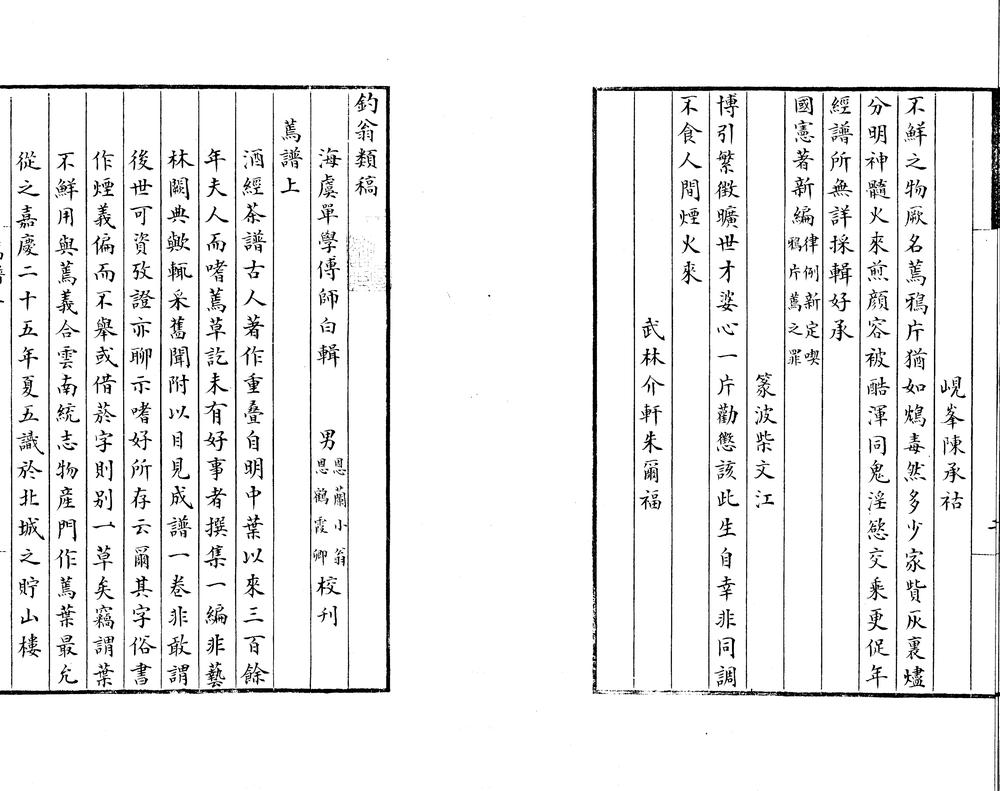 峴峯陳承祜
不鮮之物厥名蔫鴉片猶如鴆毒然多少家貲灰裏燼
分明神髓火來煎顏容被酷渾同鬼淫慾交乘更促年
經譜所無詳採輯好承
國憲著新編律例新定喫鴉片蔫之罪
篆波柴文江
博引繁徵曠世才婆心一片勸懲該此生自幸非同調
不食人間煙火來
武林介軒朱爾福
釣翁類稿
海虞單學傅師白輯 男恩蘭小翁恩鶴霞卿校刊
蔫譜上
酒經茶譜古人著作重疊自明中葉以來三百餘
年夫人而嗜蔫草訖未有好事者撰集一編非藝
林闕典歟輒采舊聞附以目見成譜一卷非敢謂
後世可資攷證亦聊示嗜好所存云爾其字俗書
作煙義偏而不舉或借菸字則别一草矣竊謂葉
不鮮用與蔫義合雲南統志物産門作蔫葉最允
從之嘉慶二十五年夏五識於北城之貯山樓